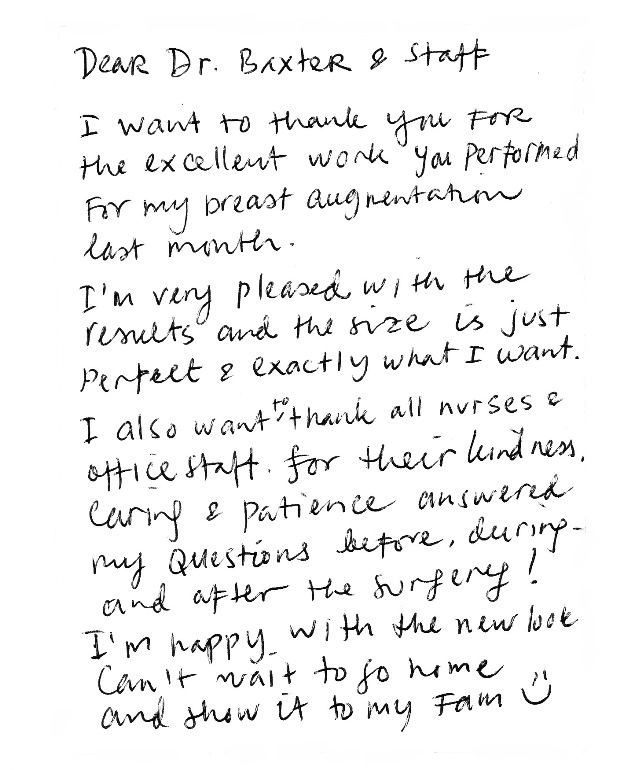 Dear Dr. Baxter & Staff
I want to thank you for
the excellent work you performed
for my breast augmentation
last month.
I'm very pleased with the
results and the size is just
perfect & exactly what I want.
I also want to thank all nurses &
office staff. for their kindness,
Caring & patience answered
my Questions before, during-
and after the surgery!
I'm happy with the new look
Can't wait to go home
and show it to my Fam